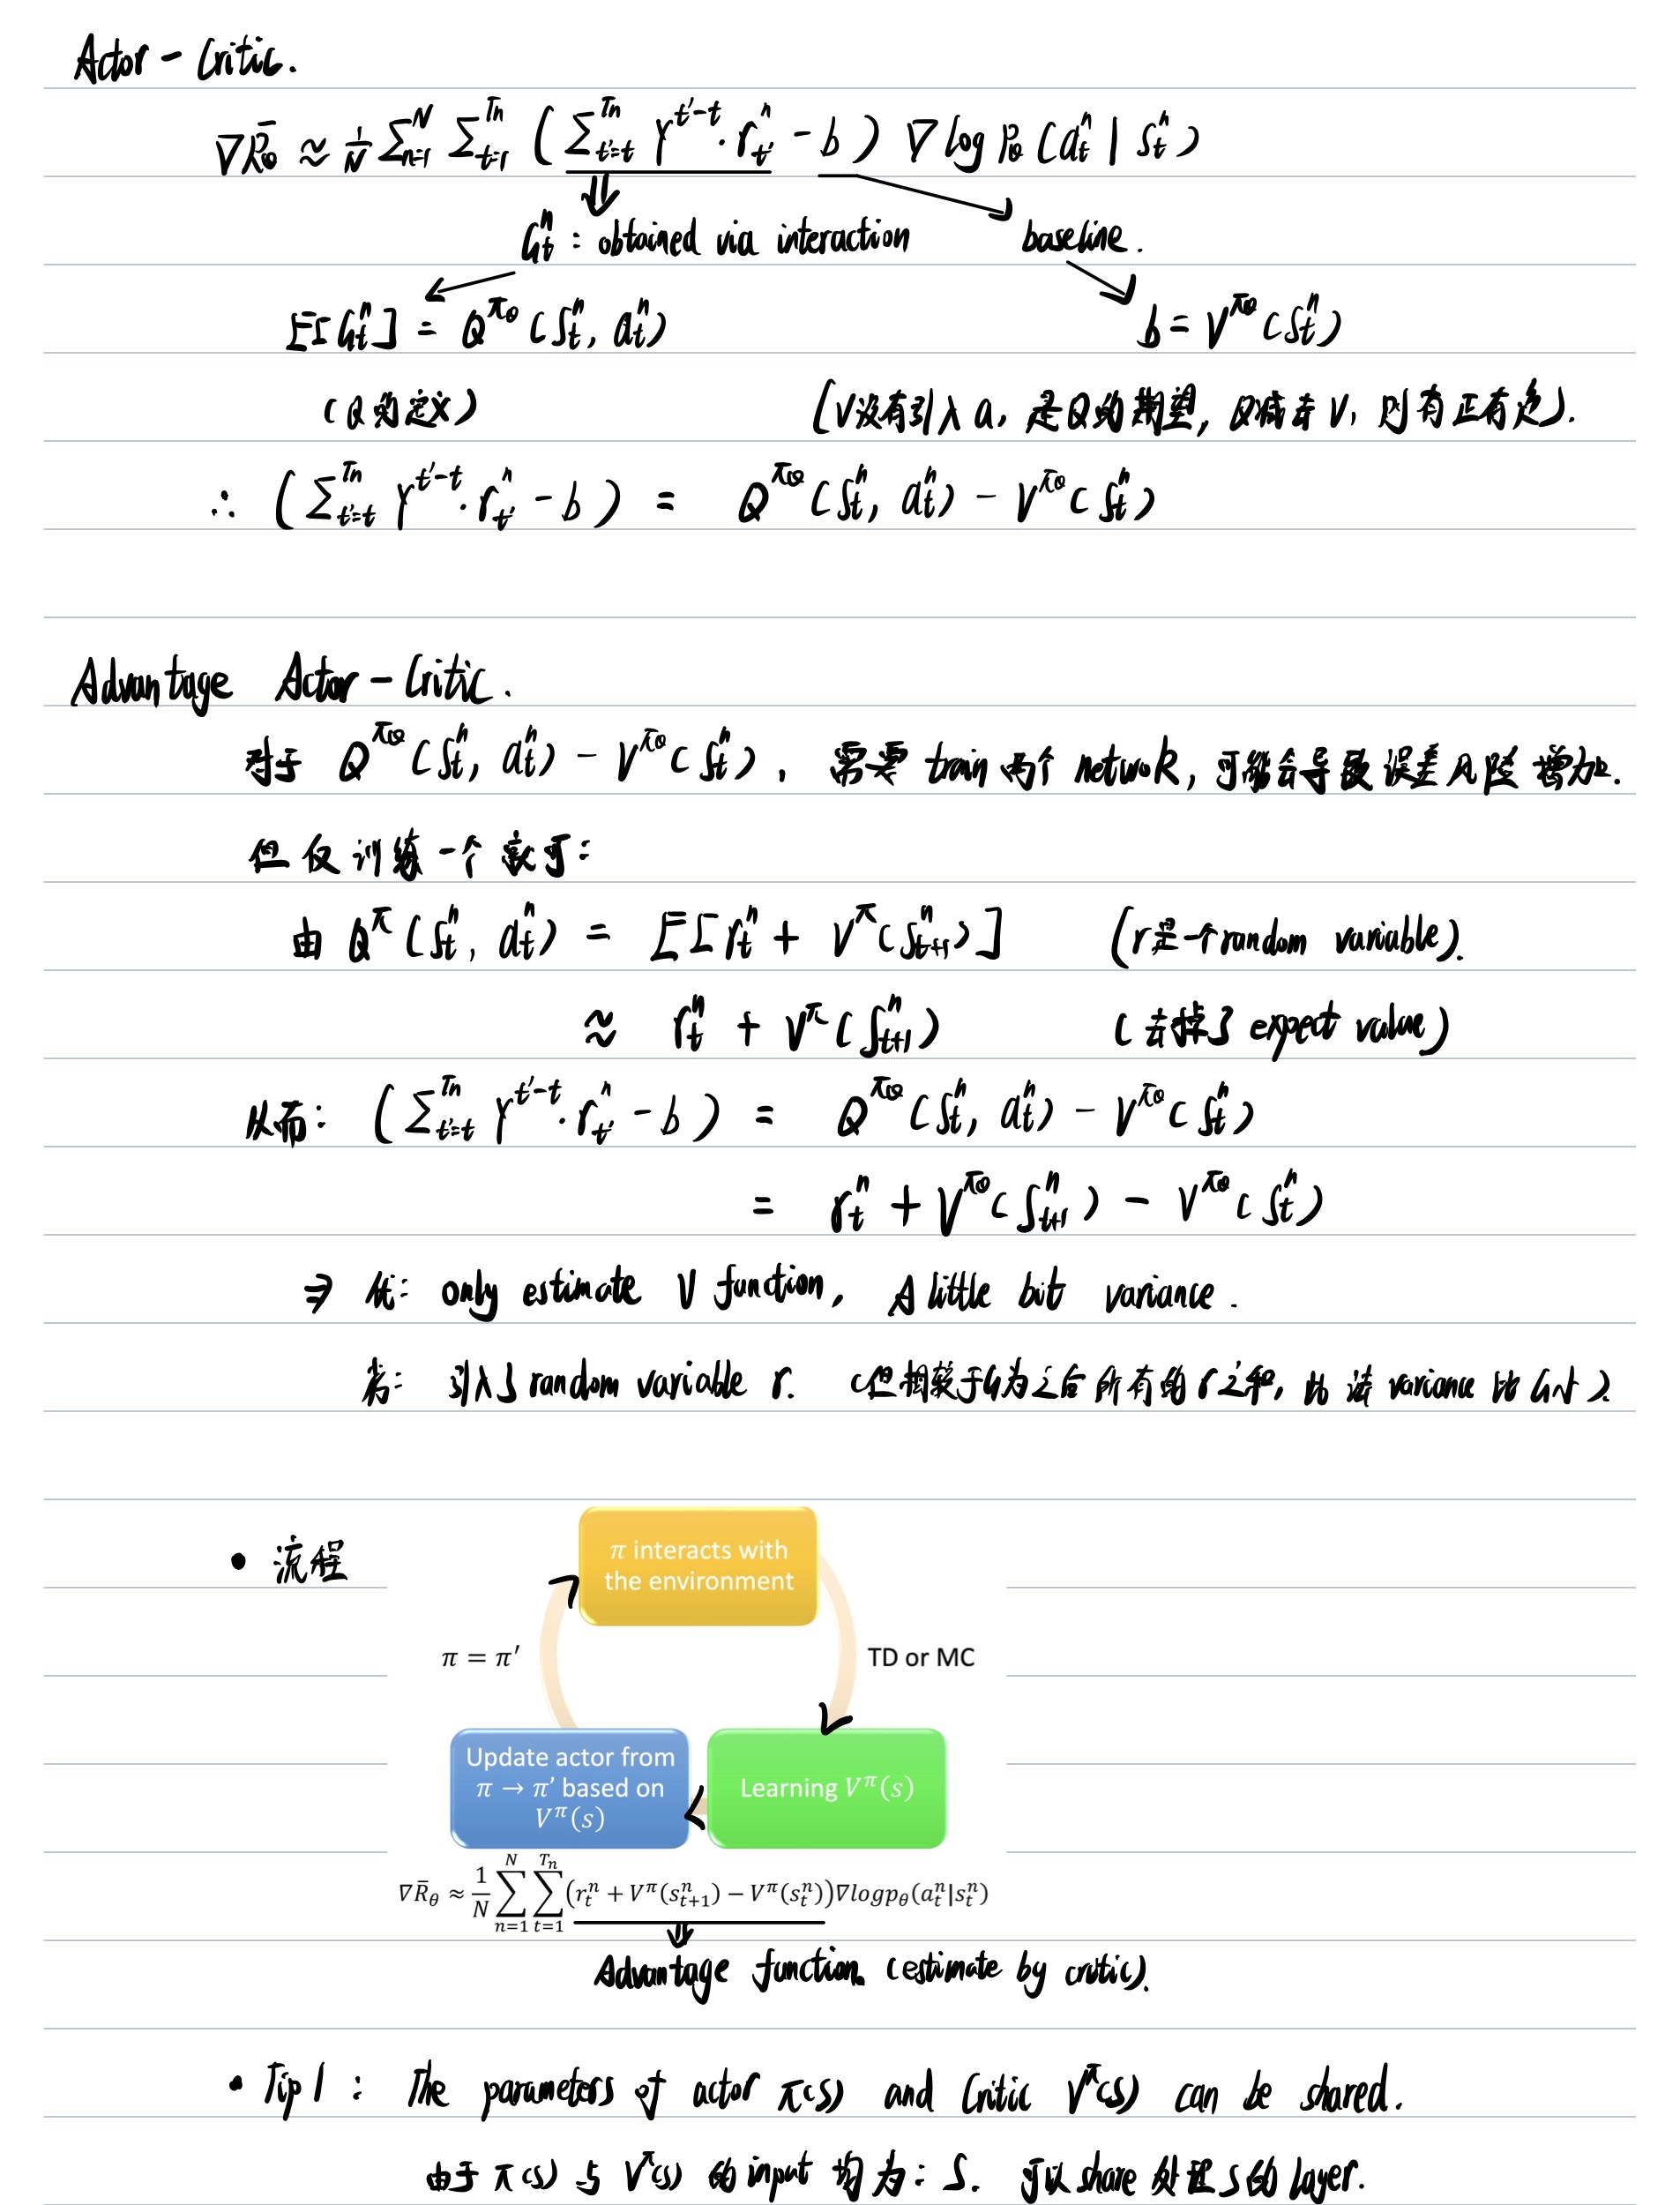 Actor-Critic.
∇R̄θ ≈ 1/N Σ_{n=1}^{N} Σ_{t=1}^{Tn} ( Σ_{t'=t}^{Tn} γ^{t'-t} · r_{t'}^n - b ) ∇ log Pθ (a_t^n | s_t^n)
G_t^n : obtained via interaction baseline.
E[G_t^n] = Q^{πθ} (s_t^n, a_t^n) b = V^{πθ} (s_t^n)
(Q的定义) (V没有引入a, 是Q的期望, Q减去V, 则有正有负).
∴ ( Σ_{t'=t}^{Tn} γ^{t'-t} · r_{t'}^n - b ) = Q^{πθ} (s_t^n, a_t^n) - V^{πθ} (s_t^n)
Advantage Actor-Critic.
对于 Q^{πθ} (s_t^n, a_t^n) - V^{πθ} (s_t^n), 需要 train 两个 netwoRk, 可能会导致误差风险增加.
但仅训练一个就可:
由 Q^π (s_t^n, a_t^n) = E[r_t^n + V^π (s_{t+1}^n)] (r是一个random variable).
≈ r_t^n + V^π (s_{t+1}^n) (去掉了 expect value)
从而: ( Σ_{t'=t}^{Tn} γ^{t'-t} · r_{t'}^n - b ) = Q^{πθ} (s_t^n, a_t^n) - V^{πθ} (s_t^n)
= r_t^n + V^{πθ} (s_{t+1}^n) - V^{πθ} (s_t^n)
⇒ 优: only estimate V function, A little bit variance.
劣: 引入了random variable r. (但相较于G为之后所有的r之和, 故该 variance 比G小)
• 流程
π interacts with
the environment
π = π′ TD or MC
Update actor from
π → π′ based on
V^π(s)
Learning V^π(s)
∇R̄_θ ≈ 1/N Σ_{n=1}^{N} Σ_{t=1}^{T_n} (r_t^n + V^π(s_{t+1}^n) − V^π(s_t^n))∇logp_θ(a_t^n|s_t^n)
Advantage function. (estimate by critic).
• Tip 1 : The parameters of actor π(s) and Critic V^π(s) can be shared.
由于 π(s) 与 V^π(s) 的 input 均为: S. 可以 share 处理 s 的 layer.